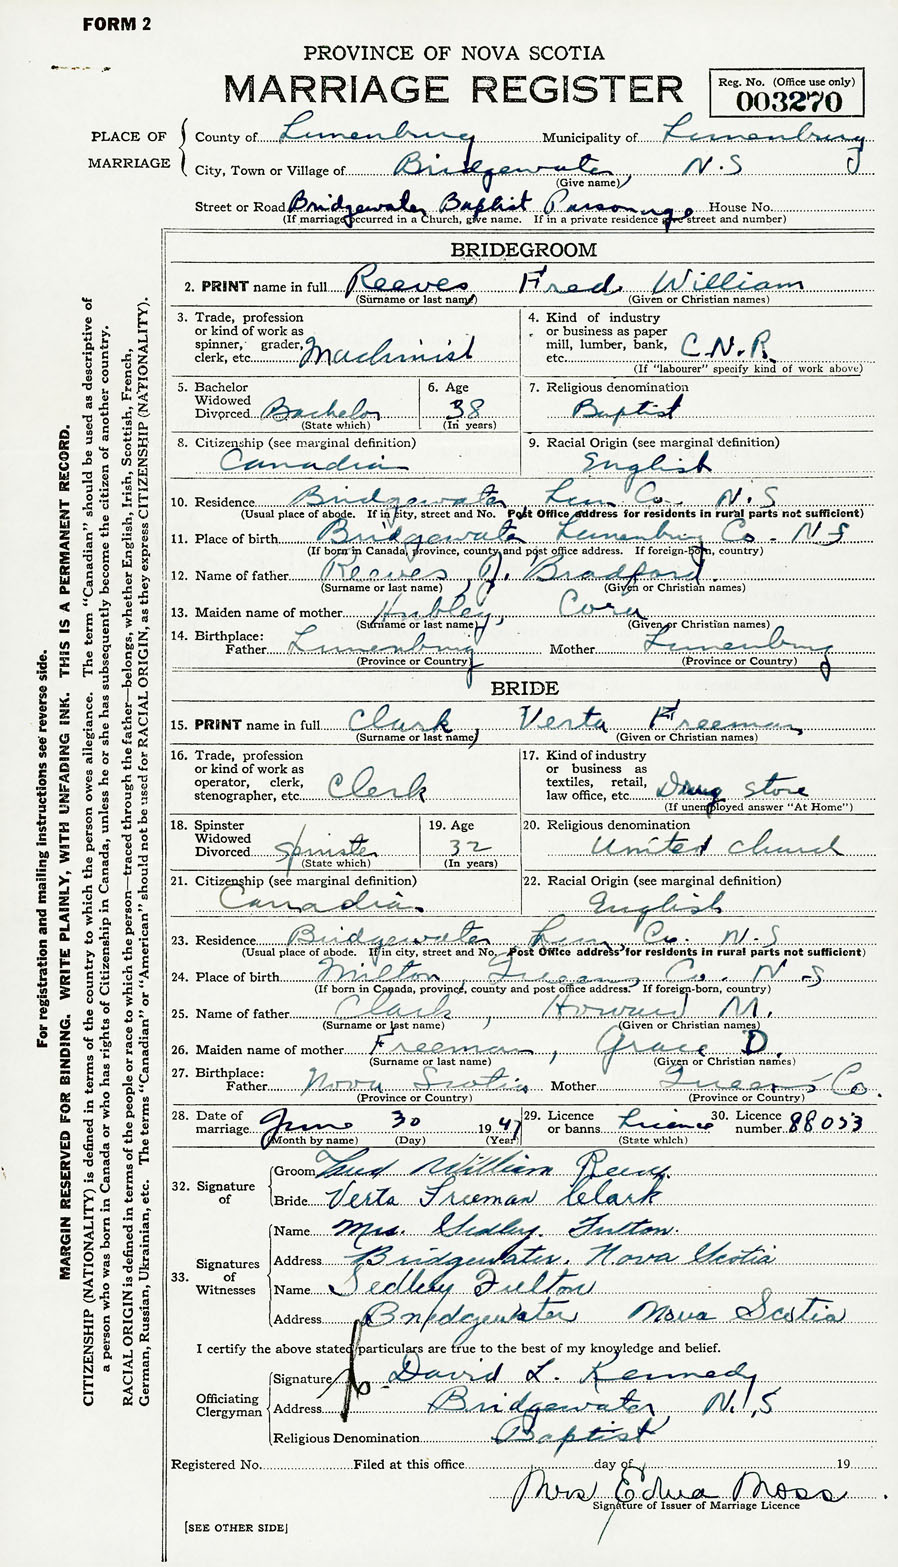 FORM 2
PROVINCE OF NOVA SCOTIA
MARRIAGE REGISTER
Reg. No. (Office use only)
003270
PLACE OF MARRIAGE
County of Lunenburg Municipality of Lunenburg
City, Town or Village of Bridgewater, N.S
(Give name)
Street or Road Bridgewater Baptist Parsonage House No.
(If marriage occurred in a Church, give name. If in a private residence give street and number)
BRIDEGROOM
2. PRINT name in full Reeves Fred William
(Surname or last name) (Given or Christian names)
3. Trade, profession or kind of work as spinner, grader, clerk, etc. Machinist
4. Kind of industry or business as paper mill, lumber, bank, etc. C.N.R.
(If "labourer" specify kind of work above)
5. Bachelor Widowed Divorced Bachelor
(State which)
6. Age 38
(In years)
7. Religious denomination Baptist
8. Citizenship (see marginal definition) Canadian
9. Racial Origin (see marginal definition) English
10. Residence Bridgewater Lun Co. N.S
(Usual place of abode. If in city, street and No. Post Office address for residents in rural parts not sufficient)
11. Place of birth Bridgewater Lunenburg Co. N S
(If born in Canada, province, county and post office address. If foreign-born, country)
12. Name of father Reeves, J. Bradford
(Surname or last name) (Given or Christian names)
13. Maiden name of mother Hubley, Cora
(Surname or last name) (Given or Christian names)
14. Birthplace:
Father Lunenburg Mother Lunenburg
(Province or Country) (Province or Country)
BRIDE
15. PRINT name in full Clark, Verta Freeman
(Surname or last name) (Given or Christian names)
16. Trade, profession or kind of work as operator, clerk, stenographer, etc. Clerk
17. Kind of industry or business as textiles, retail, law office, etc. Drug Store
(If unemployed answer "At Home")
18. Spinster Widowed Divorced Spinster
(State which)
19. Age 32
(In years)
20. Religious denomination United Church
21. Citizenship (see marginal definition) Canadian
22. Racial Origin (see marginal definition) English
23. Residence Bridgewater Lun Co. N.S
(Usual place of abode. If in city, street and No. Post Office address for residents in rural parts not sufficient)
24. Place of birth Milton, Queens Co. N.S
(If born in Canada, province, county and post office address. If foreign-born, country)
25. Name of father Clark, Howard M.
(Surname or last name) (Given or Christian names)
26. Maiden name of mother Freeman, Grace D.
(Surname or last name) (Given or Christian names)
27. Birthplace:
Father Nova Scotia Mother Queens Co.
(Province or Country) (Province or Country)
28. Date of marriage June 30 1947
(Month by name) (Day) (Year)
29. Licence or banns Licence
(State which)
30. Licence number 88053
32. Signature of
Groom Fred William Reeves
Bride Verta Freeman Clark
33. Signatures of Witnesses
Name Mrs. Sedley Fulton.
Address Bridgewater, Nova Scotia
Name Sedley Fulton
Address Bridgewater Nova Scotia
I certify the above stated particulars are true to the best of my knowledge and belief.
Officiating Clergyman
Signature David L. Kennedy
Address Bridgewater N.S
Religious Denomination Baptist
Registered No. Filed at this office day of 19
Mrs Edna Moss
Signature of Issuer of Marriage Licence
[SEE OTHER SIDE]
For registration and mailing instructions see reverse side.
MARGIN RESERVED FOR BINDING. WRITE PLAINLY, WITH UNFADING INK. THIS IS A PERMANENT RECORD.
CITIZENSHIP (NATIONALITY) is defined in terms of the country to which the person owes allegiance. The term "Canadian" should be used as descriptive of
a person who was born in Canada or who has rights of Citizenship in Canada, unless he or she has subsequently become the citizen of another country.
RACIAL ORIGIN is defined in terms of the people or race to which the person—traced through the father—belongs, whether English, Irish, Scottish, French,
German, Russian, Ukrainian, etc. The terms "Canadian" or "American" should not be used for RACIAL ORIGIN, as they express CITIZENSHIP (NATIONALITY).